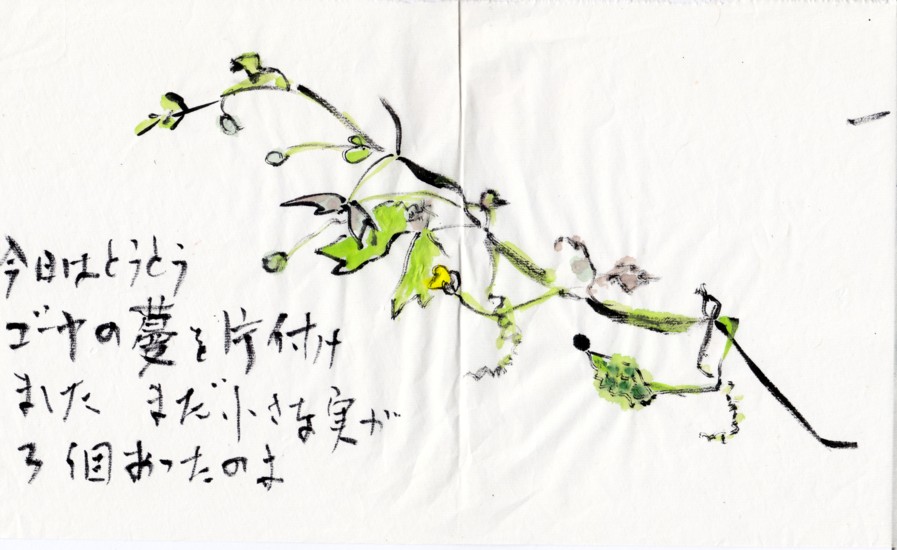 今日はとうとう
ゴーヤの蔓を片付け
ました まだ小さな実が
3個あったのよ